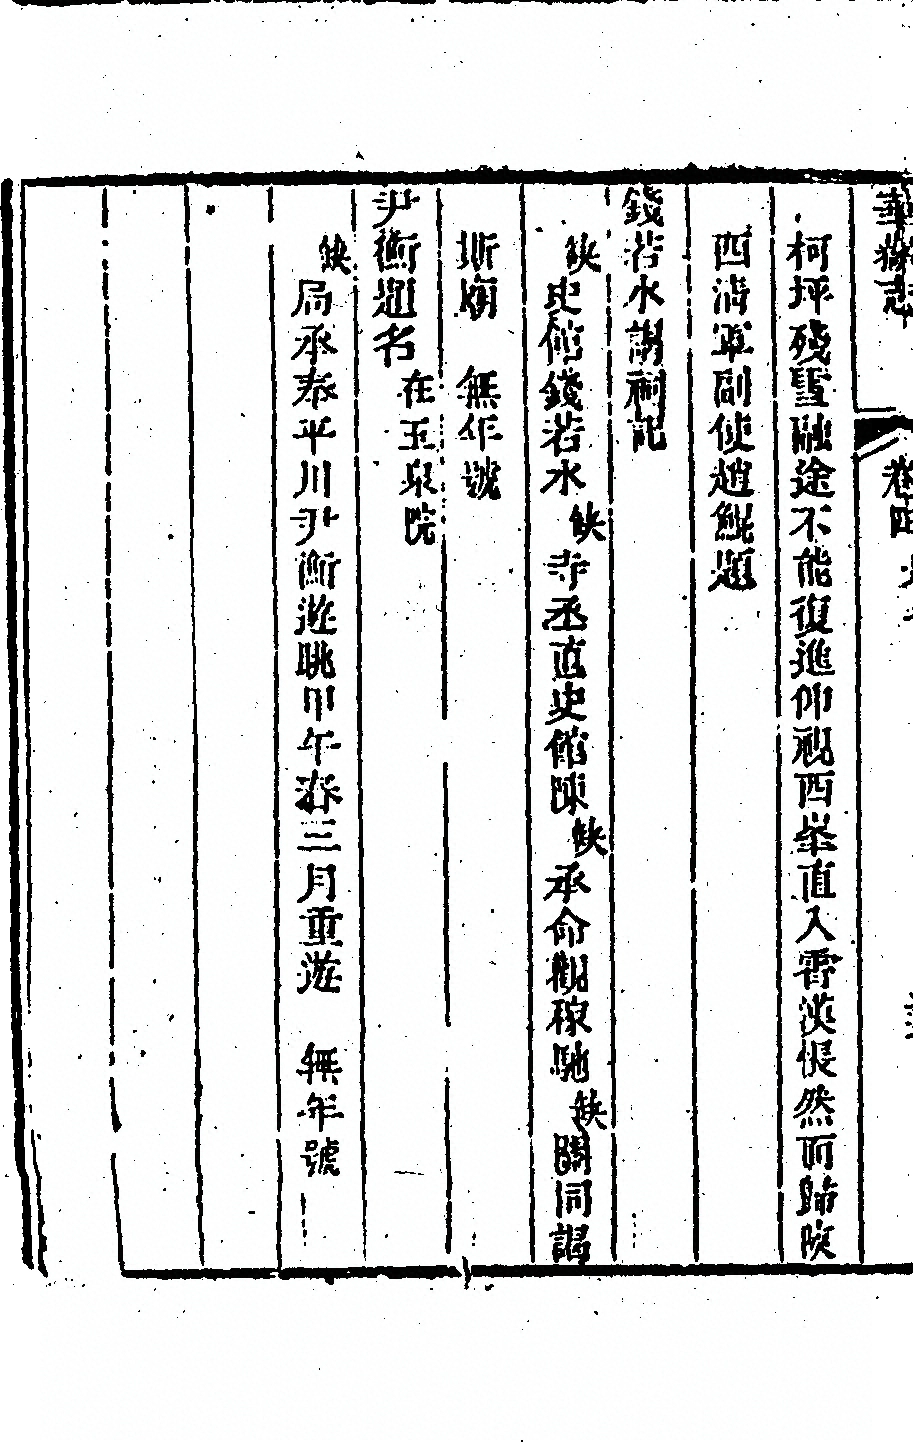 華嶽志
卷四
柯坪殘雪融途不能復進仰視西峯直入霄漢悵然而歸陝
西清軍副使趙鯤題
錢若水謁祠記
缺史館錢若水缺寺丞直史館陳缺承命觀稼馳缺關同謁
斯廟 無年號
尹衡題名 在玉泉院
缺局承奉平川尹衡遊眺甲午春三月重遊 無年號